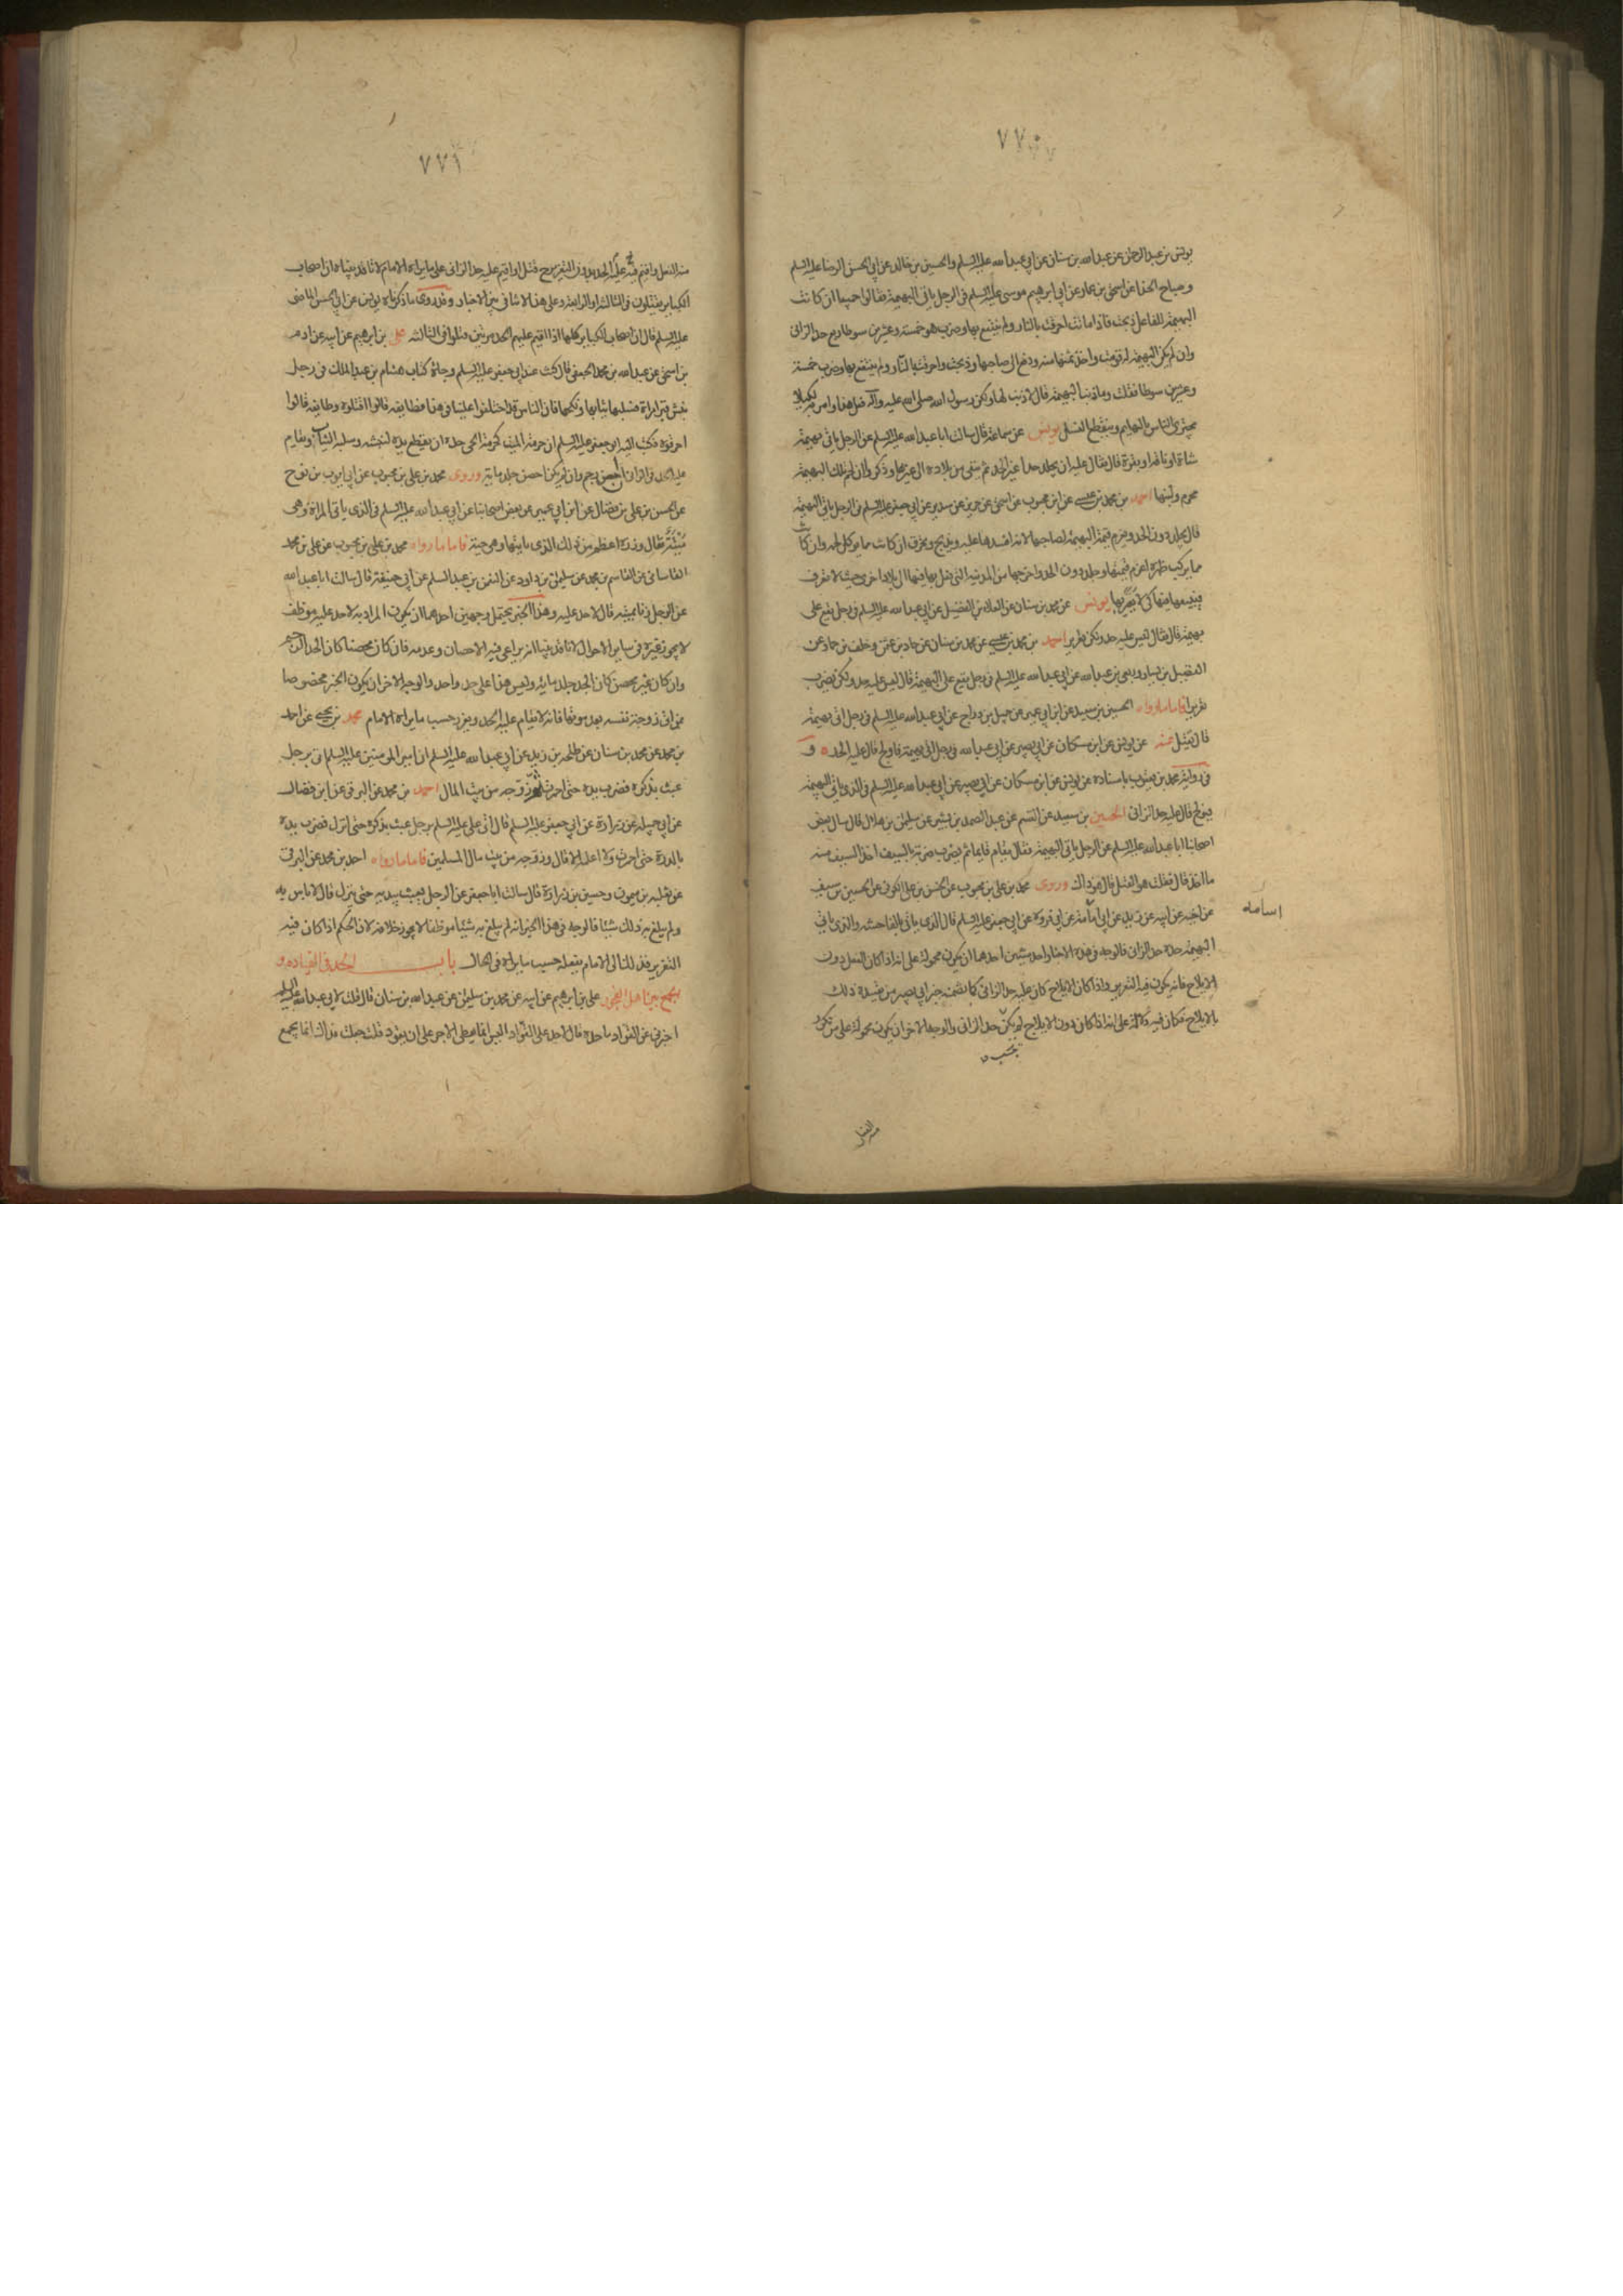 ٧٧٠
يونس بن عبد الرحمن عن عبد الله بن سنان عن ابي عبد الله عليه السلم والحسين بن خالد عن ابي الحسن الرضا عليه السلم
وصباح الحذا عن اسحق بن عمار عن ابي ابرهيم موسى عليه السلم في الرجل ياتي البهيمة فقالوا جميعا ان كانت
البهيمة للفاعل ذبحت فاذا ماتت احرقت بالنار ولم ينتفع بها وضرب هو خمسة وعشرين سوطا ربع حد الزاني
وان لم يكن البهيمة له قومت واخذ ثمنها منه ودفع الى صاحبها وذبحت واحرقت بالنار ولم ينتفع بها وضرب خمسة
وعشرين سوطا فقلت وما ذنب البهيمة قال لا ذنب لها ولكن رسول الله صلى الله عليه وآله فعل هذا وامر به لكيلا
يجترئ الناس بالبهايم وينقطع النسل يونس عن سماعة قال سالت ابا عبد الله عليه السلم عن الرجل ياتي بهيمة
شاة او ناقة او بقرة قال فقال عليه ان يجلد حدا غير الحد ثم ينفى من بلاده الى غيرها وذكروا ان لحم تلك البهيمة
محرم ولبنها احمد بن محمد بن عيسى عن ابن محبوب عن اسحق عن حريز عن سدير عن ابي جعفر عليه السلم في الرجل ياتي البهيمة
قال يجلد دون الحد ويغرم قيمة البهيمة لصاحبها لانه افسدها عليه ويذبح ويحرق ان كانت مما يوكل لحمه وان كانت
مما يركب ظهره اغرم قيمتها وجلد دون الحد واخرجها من المدينة التي فعل بها فيها الى بلاد اخرى حيث لا تعرف
فيبيعها فيها كي لا يعير بها يونس عن محمد بن سنان عن العلاء بن الفضيل عن ابي عبد الله عليه السلم في رجل يقع على
بهيمة قال فقال ليس عليه حد ولكن تعزير احمد بن محمد بن عيسى عن محمد بن سنان عن حماد بن عثمن وخلف بن حماد عن
الفضيل بن يسار وربعي بن عبد الله عن ابي عبد الله عليه السلم في رجل يقع على البهيمة قال ليس عليه حد ولكن يضرب
تعزيرا فاما ما رواه الحسين بن سعيد عن ابن ابي عمير عن جميل بن دراج عن ابي عبد الله عليه السلم في رجل اتى بهيمة
قال يقتل عنه عن يونس عن ابن مسكان عن ابي بصير عن ابي عبد الله في رجل اتى بهيمة فاولج قال عليه الحد ٥ و
في رواية محمد بن يعقوب باسناده عن يونس عن ابن مسكان عن ابي بصير عن ابي عبد الله عليه السلم في الذي ياتي البهيمة
فيولج قال عليه حد الزاني الحسين بن سعيد عن القسم عن عبد الصمد بن بشير عن سليمن بن هلال قال سال بعض
اصحابنا ابا عبد الله عليه السلم عن الرجل ياتي البهيمة فقال يقام قايما ثم يضرب ضربة بالسيف اخذ السيف منه
ما اخذ قال فقلت هو القتل قال هو ذاك وروى محمد بن علي بن محبوب عن الحسن بن علي الكوفي عن الحسين بن سيف
عن اخيه عن ابيه عن زيد عن ابي امامة عن ابي فروة عن ابي جعفر عليه السلم قال الذي ياتي بالفاحشة والذي ياتي
البهيمة حده حد الزاني فالوجه في هذه الاخبار احد شيئين احدهما ان يكون محمولة على انه اذا كان الفعل دون
الايلاج فانه يكون فيه التعزير واذا كان الايلاج كان عليه حد الزاني كما تضمنه خبر ابي بصير من تقييده ذلك
بالايلاج فكان فيه دلالة على انه اذا كان دون الايلاج لم يكن حد الزاني والوجه الاخر ان يكون محمولة على من تكرر
اسامه
من الفعل
٧٧١
منه الفعل واقيم فيه عليه الحد بدون التعزير قتل او اقيم عليه حد الزاني على ما يراه الامام لانا قد بينا ان اصحاب
الكباير يقتلون في الثالثة او الرابعة وعلى هذا لا تنافي بين الاخبار وقد روى ما ذكرناه يونس عن ابي الحسن الماضي
عليه السلم قال ان اصحاب الكباير كلها اذا اقيم عليهم الحد مرتين قتلوا في الثالثة علي بن ابرهيم عن ابيه عن ادم
بن اسحق عن عبد الله بن محمد الجعفي قال كنت عند ابي جعفر عليه السلم وجاءه كتاب هشام بن عبد الملك في رجل
نبش قبر امراة فسلبها ثيابها ونكحها فان الناس قد اختلفوا علينا في هذا فطايفة قالوا اقتلوه وطايفة قالوا
احرقوه فكتب اليه ابو جعفر عليه السلم ان حرمة الميت كحرمة الحي حده ان يقطع يده لنبشه وسلبه الثياب ويقام
عليه الحد في الزنا ان احصن رجم وان لم يكن احصن جلد ماية وروى محمد بن علي بن محبوب عن ابي ايوب بن نوح
عن الحسن بن علي بن فضال عن ابن ابي عمير عن بعض اصحابنا عن ابي عبد الله عليه السلم في الذي ياتي المراة وهي
ميتة فقال وزره اعظم من ذلك الذي ياتيها وهي حية فاما ما رواه محمد بن علي بن محبوب عن علي بن محمد
القاساني عن القاسم بن محمد عن سليمن بن داود عن النعمن بن عبد السلم عن ابي حنيفة قال سالت ابا عبد الله
عن الرجل زنا بميتة قال لا حد عليه وهذا الخبر يحتمل وجهين احدهما ان يكون المراد به لا حد عليه موظف
لا يجوز غيره في ساير الاحوال لانا قد بينا انه يراعى فيه الاحصان وعدمه فان كان محصنا كان الحد الرجم
وان كان غير محصن كان الحد جلد ماية وليس هذا على حد واحد والوجه الاخر ان يكون الخبر مخصوصا
بمن اتى زوجة نفسه بعد موتها فانه لا يقام عليه الحد ويعزر حسب ما يراه الامام محمد بن يحيى عن احمد
بن محمد عن محمد بن سنان عن طلحة بن زيد عن ابي عبد الله عليه السلم ان امير المومنين عليه السلم اتى برجل
عبث بذكره فضرب يده حتى احمرت ثم زوجه من بيت المال احمد بن محمد عن البرقي عن ابن فضال
عن ابي جميلة عن زرارة عن ابي جعفر عليه السلم قال اتى علي عليه السلم برجل عبث بذكره حتى انزل فضرب يده
بالدرة حتى احمرت ولا اعلمه الا قال وزوجه من بيت مال المسلمين فاما ما رواه احمد بن محمد عن البرقي
عن ثعلبة بن ميمون وحسين بن زرارة قال سالت ابا جعفر عن الرجل يعبث بيديه حتى ينزل قال لا باس به
ولم يبلغ به ذلك شيئا فالوجه في هذا الخبر انه لم يبلغ به شيئا موظفا لا يجوز خلافه لان الحكم اذا كان فيه
التعزير فذلك الى الامام يفعله حسب ما يراه في الحال باب الحد في القيادة و
الجمع بين اهل الفجور علي بن ابرهيم عن ابيه عن محمد بن سليمن عن عبد الله بن سنان قال قلت لابي عبد الله عليه السلم
اخبرني عن القواد ما حده قال لا حد على القواد اليس انما يعطى الاجر على ان يقود قلت جعلت فداك انما يجمع